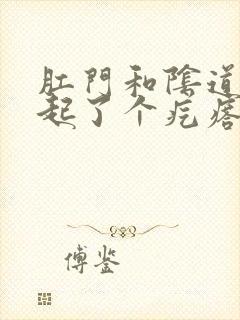 肛門和陰道
起了个疙瘩
傅鉴